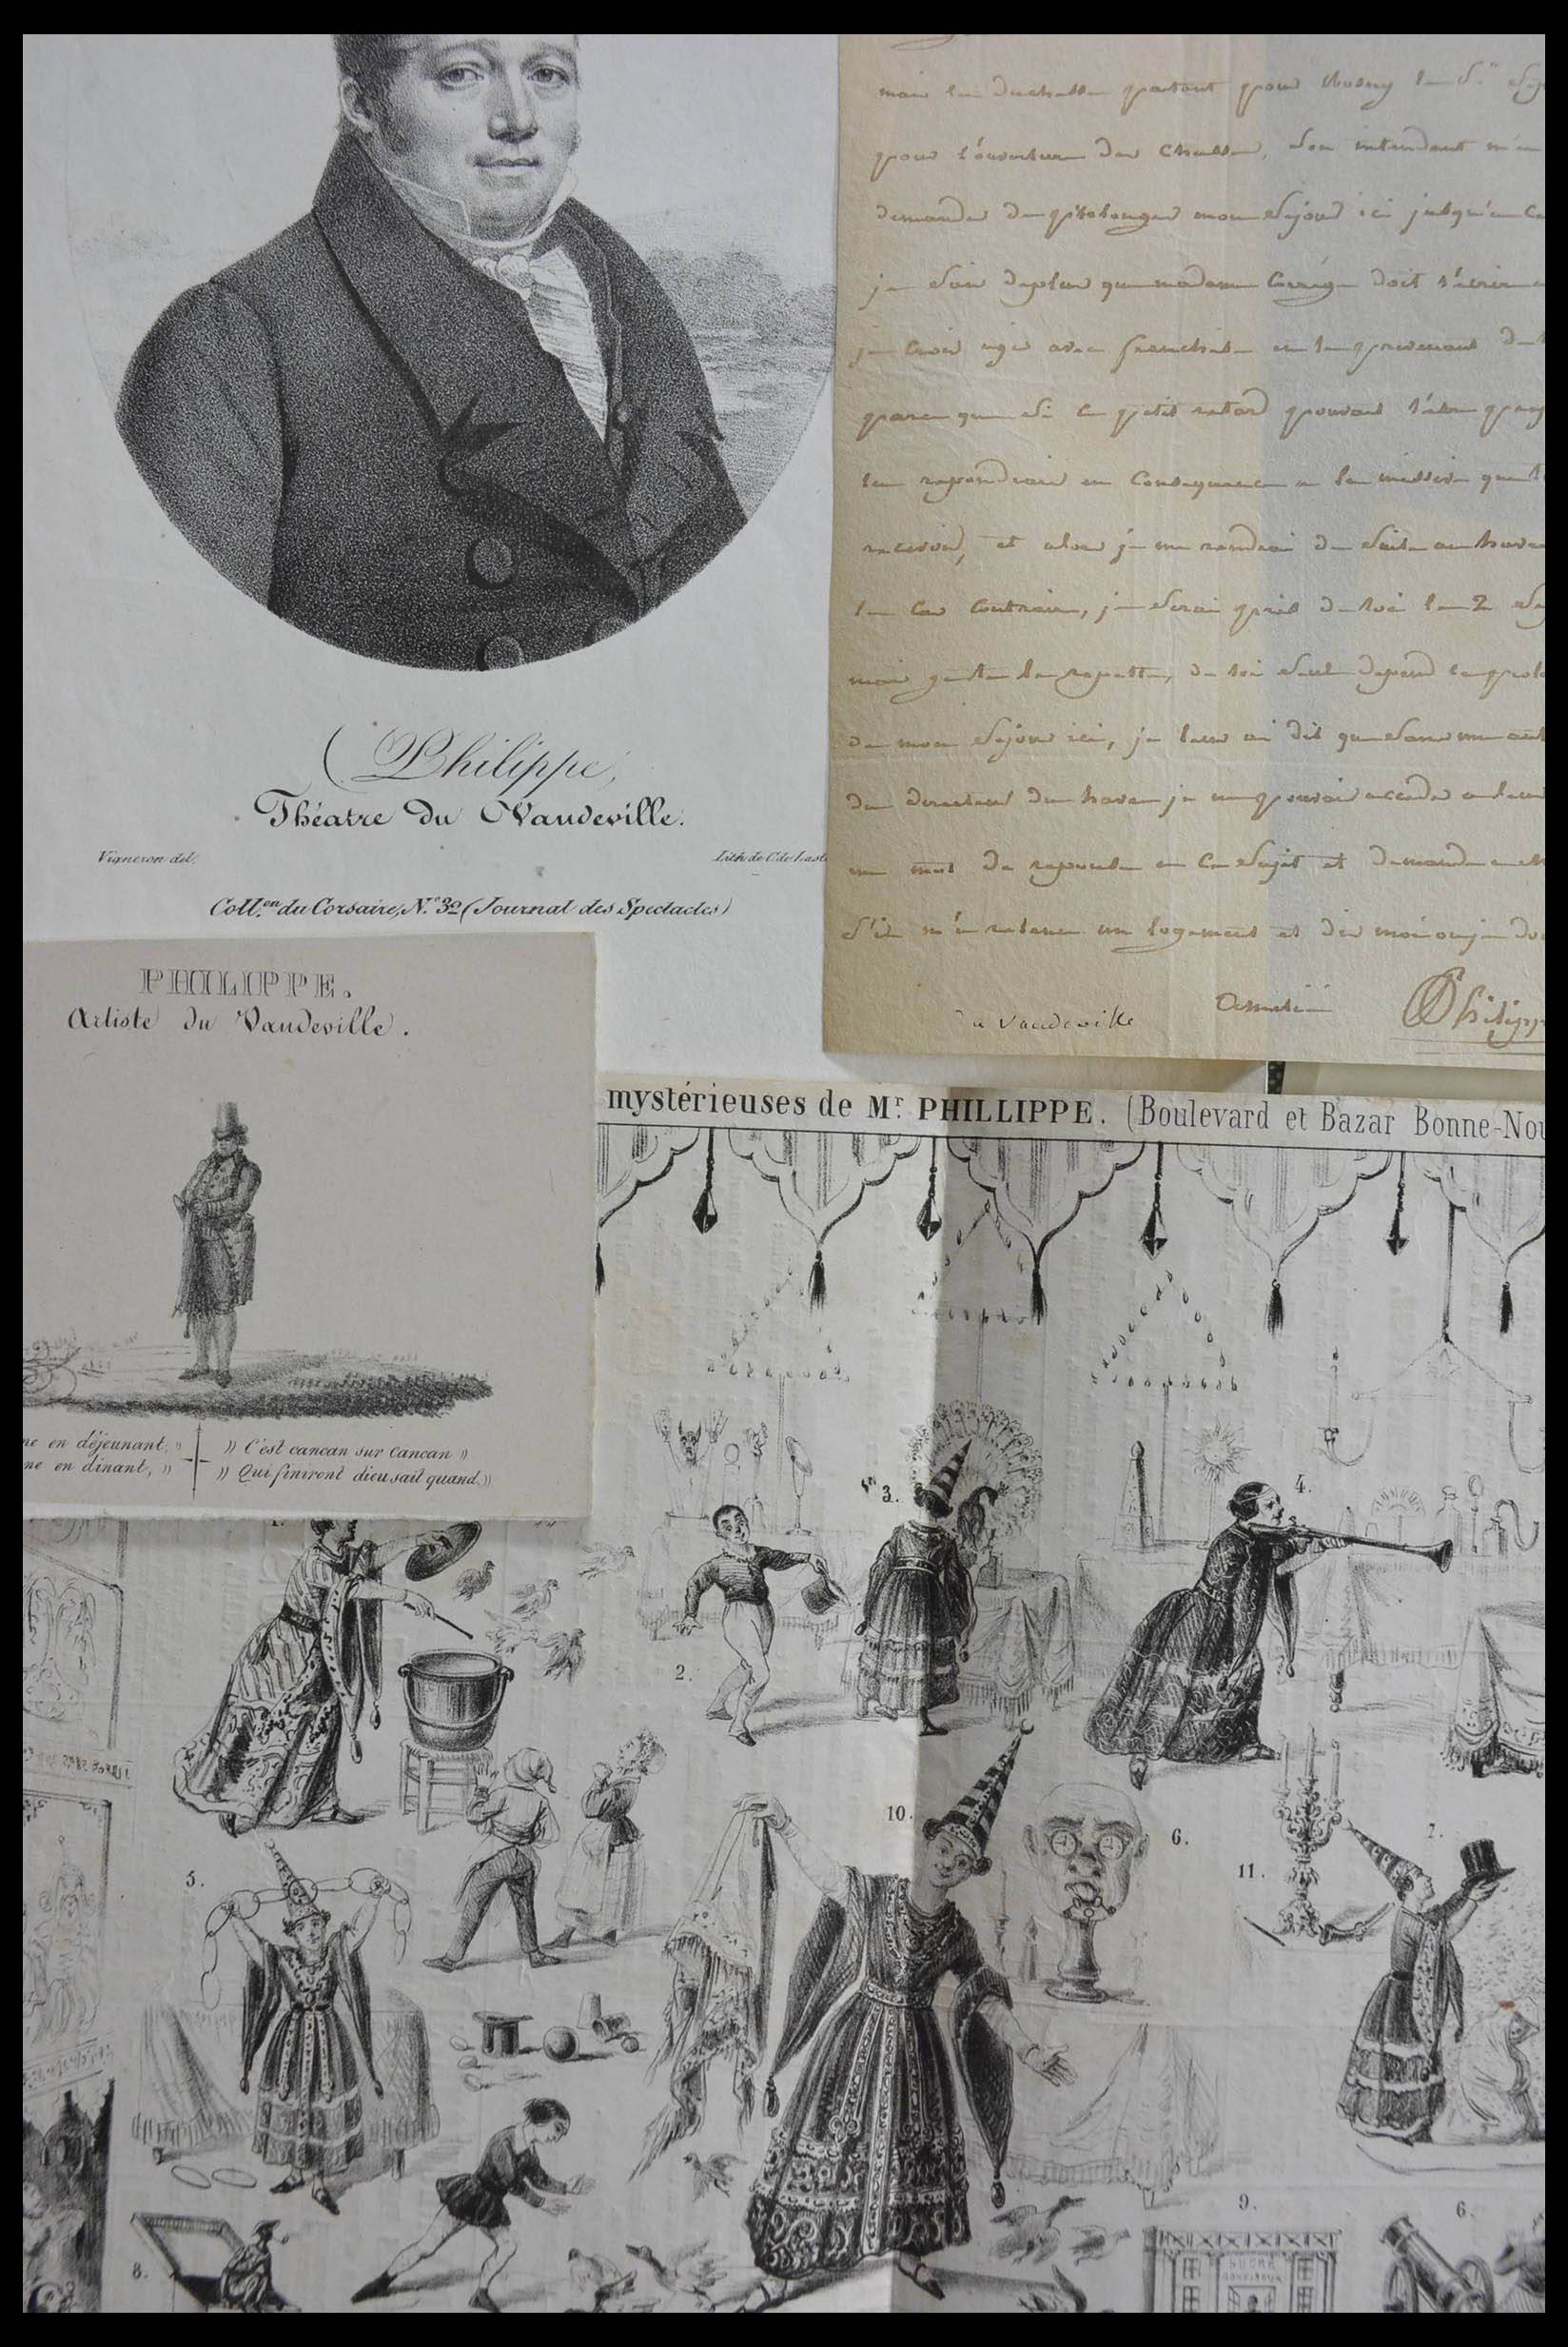 Philippe,
Théatre du Vaudeville.
Vigneron del.
Lith de C. de Last
Coll.on du Corsaire, N.o 32 (Journal des Spectacles)
pour l'ouverture des Chasses, Son intendant m'a
demandé de prolonger mon Séjour ici jusqu'a ce
je Sais deplus que madame doit t'ecrire
je Crois agir avec franchise en te prevenant de
parce que Si ce petit retard pouvait t'etre
tu repondrais en Consequence a la missive que tu
recevras, et alors je me rendrai de Suite au havre
le Cas Contraire, je Serai près de toi le 2 Se
mais je te le repette, de toi Seul depend
de mon Séjour ici, je leur ai dit que Sans
du directeur du havre je ne pouvais acceder a leur
un mot de reponse a Ce Sujet et demande
S'il m'a retenu un logement et dis moi ou je
du Vaudeville
Amitié
Philipp
PHILIPPE.
Artiste du Vaudeville.
ne en déjeunant, »
ne en dinant, »
» C'est cancan sur cancan »
» Qui finiront dieu sait quand. »
mystérieuses de Mr. PHILLIPPE. (Boulevard et Bazar Bonne-Nou
3.
4.
2.
10.
6.
7.
11.
5.
9.
6.
8.
SUCRE